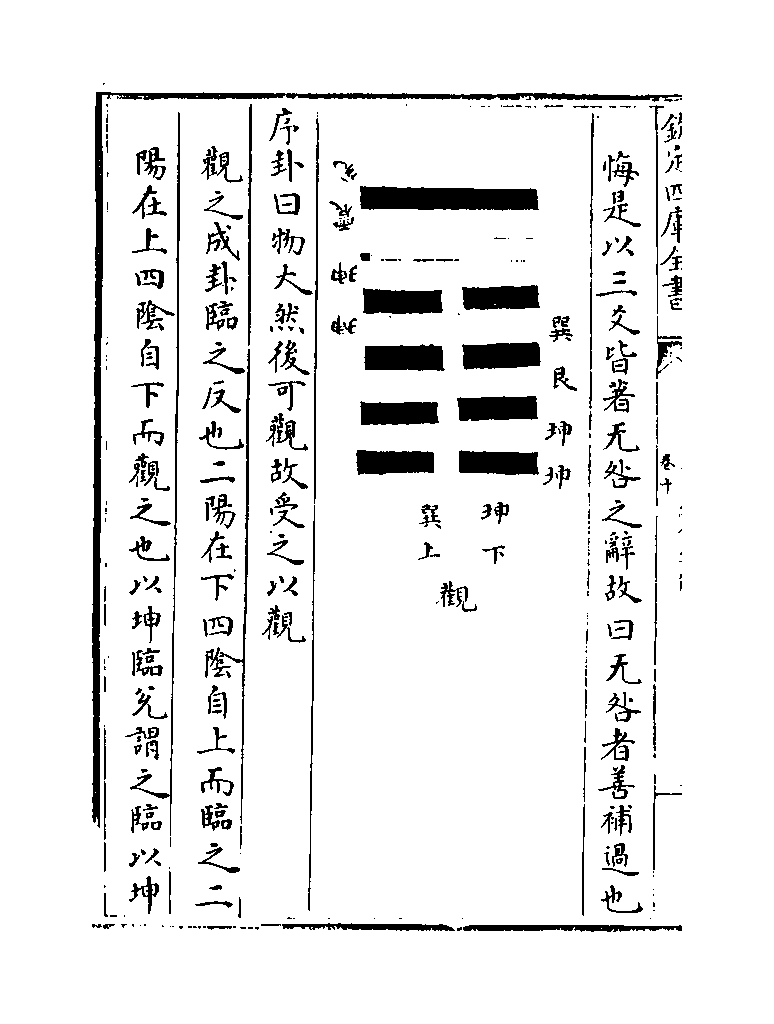 欽定四庫全書
卷十
悔是以三爻皆著无咎之辭故曰无咎者善補過也
巽艮坤坤
坤下
巽上
觀
兊震坤坤
序卦曰物大然後可觀故受之以觀
觀之成卦臨之反也二陽在下四陰自上而臨之二
陽在上四陰自下而觀之也以坤臨兊謂之臨以坤